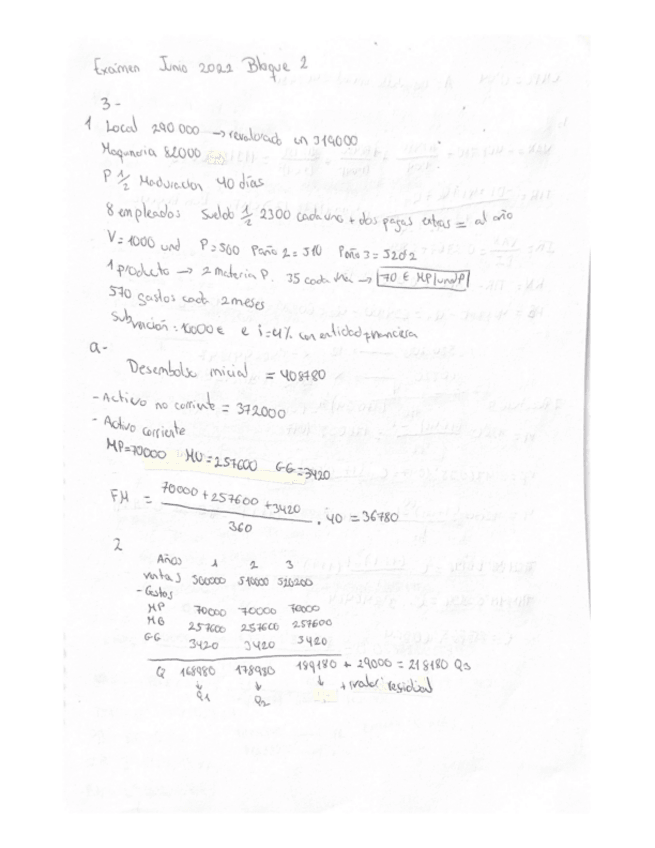 Examen Junio 2022 Bloque 2
3-
1 Local 290 000 → revalorado en 319000
Maquinaria 82000
P 1/2 Maduración 40 días
8 empleados Sueldo 1/2 2300 cada uno + dos pagas extras = al año
V=1000 und P=500 Paño 2=510 Paño 3=520'2
1 producto → 2 materia P. 35 cada una → 70 € MP/und P
570 gastos cada 2 meses
Subvención = 10000€ e i=4% con entidad financiera
a-
Desembolso inicial = 408780
- Activo no corriente = 372000
- Activo corriente
MP=70000 MO=257600 GG=3420
FM = 70000+257600+3420 / 360 · 40 = 36780
2
Años 1 2 3
ventas 500000 510000 520200
- Gastos
MP 70000 70000 70000
MO 257600 257600 257600
GG 3420 3420 3420
Q 168980 178980 189180 + 29000 = 218180 Q3
↓ ↓ ↓ + valor residual
Q1 Q2